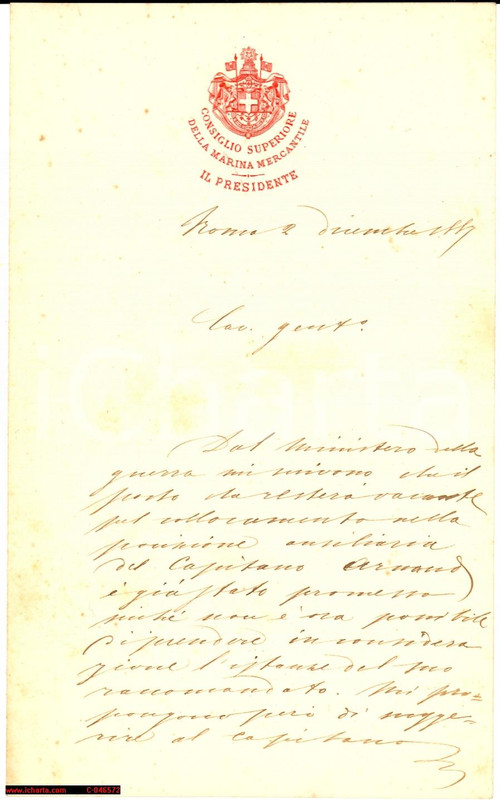 CONSIGLIO SUPERIORE
DELLA MARINA MERCANTILE
IL PRESIDENTE
Roma 2 dicembre 1887
Cav. gent.o
Dal Ministero della
guerra mi scrivono che il
posto che resterà vacante
pel collocamento nella
posizione ausiliaria
del Capitano Arnaud
è già stato promesso
sicché non è ora possibile
di prendere in considera
zione l'istanza del suo
raccomandato. Mi pro=
pongono però di sugge=
rire al Capitano
iCharta
www.icharta.com C-046572